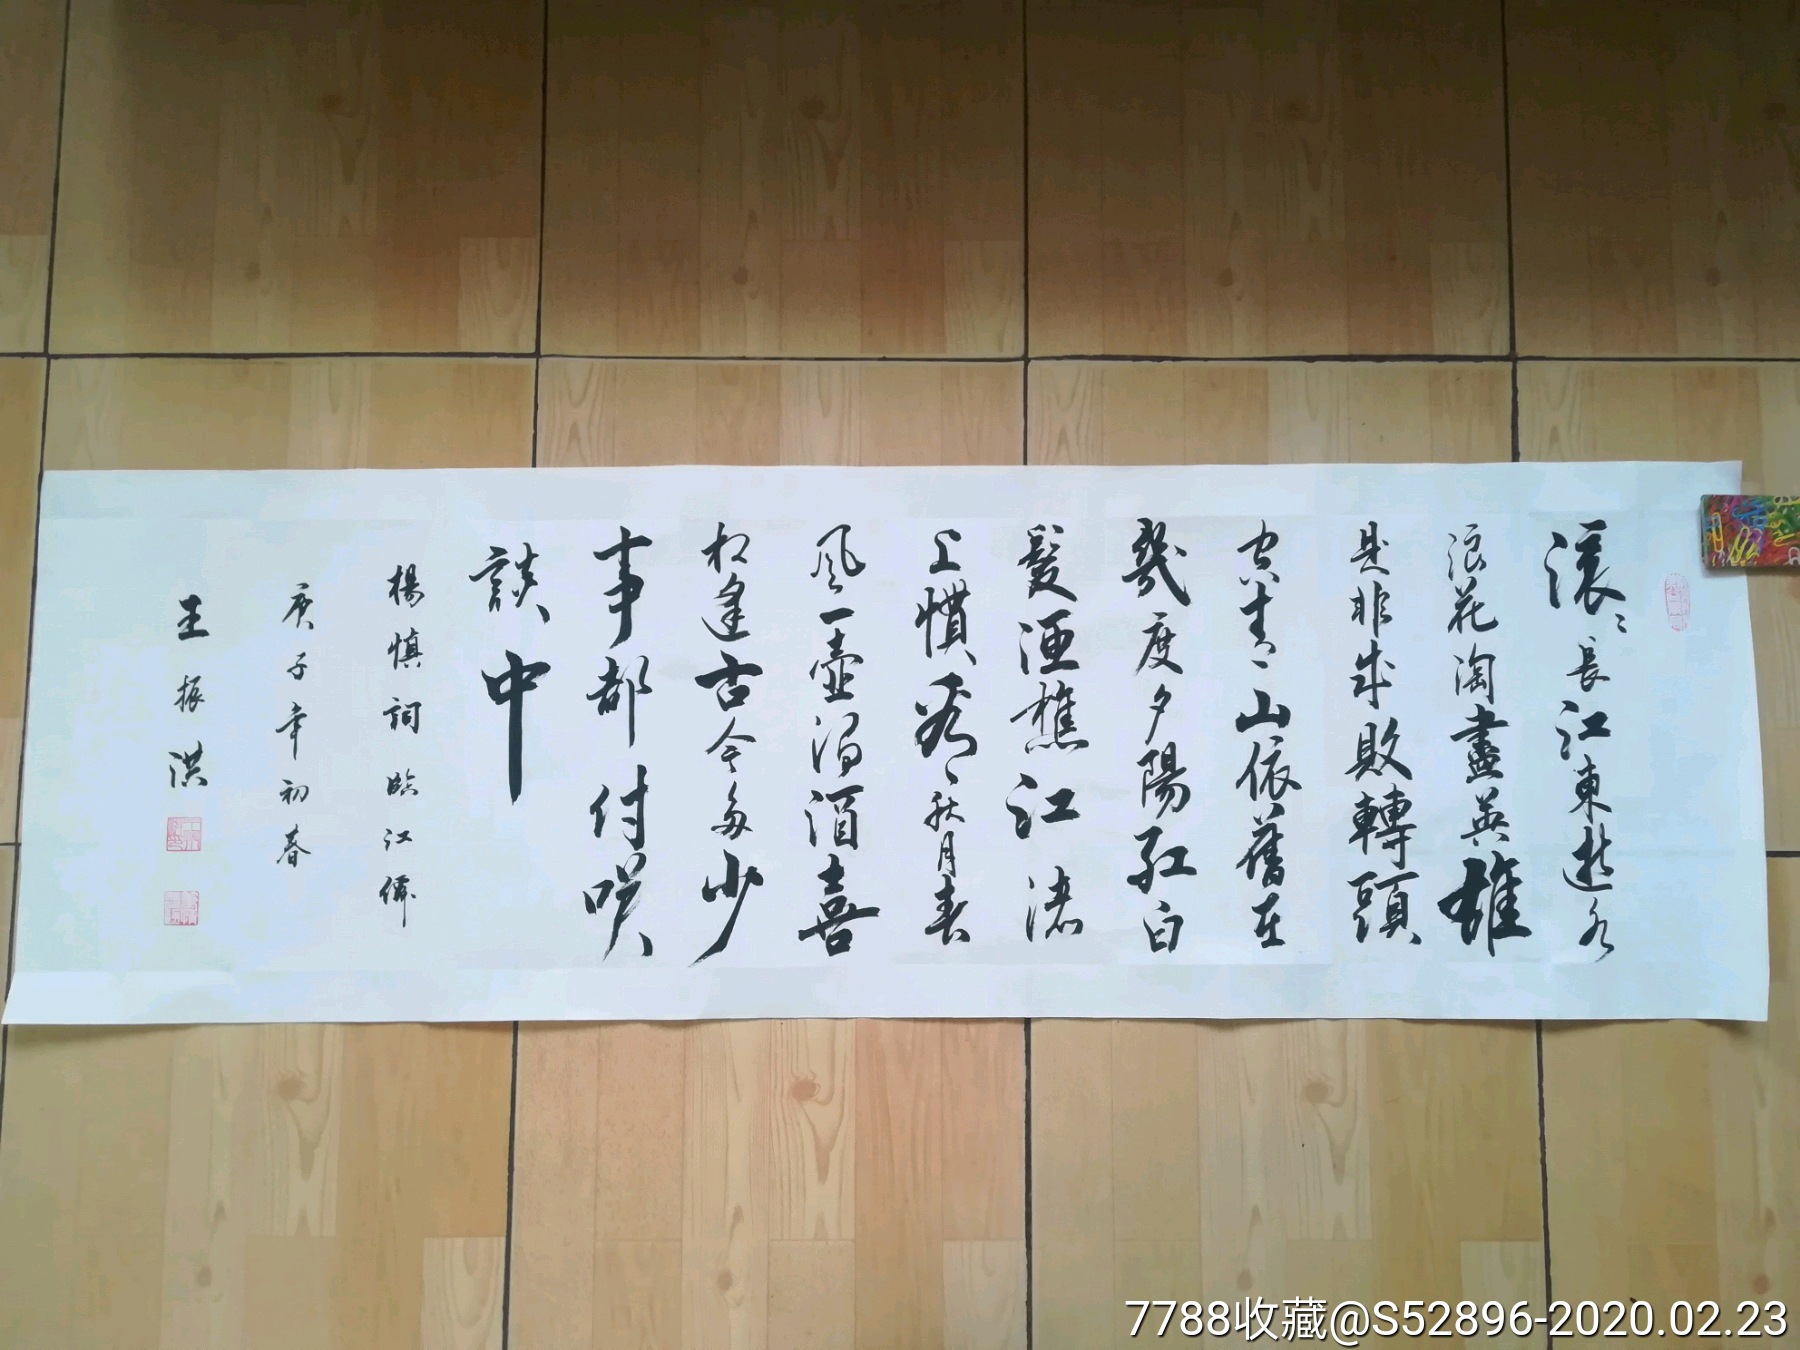 滚〻長江東逝水
浪花淘盡英雄
是非成敗轉頭
空青山依舊在
幾度夕陽紅白
髮漁樵江渚
上慣看秋月春
風一壺濁酒喜
相逢古今多少
事都付咲
談中
楊慎詞臨江僊
庚子年初春
王振洪
7788收藏@S52896-2020.02.23